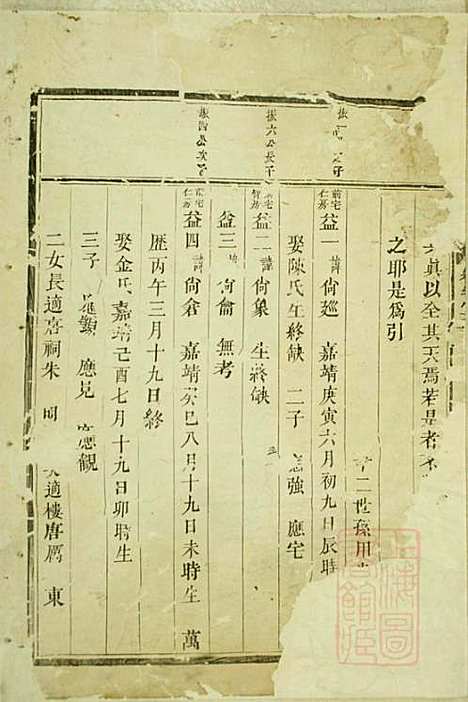 真以全其天焉若是者
之耶是爲引
二世孫用
前宅仁房 益一 諱 尙廵 嘉靖庚寅六月初九日辰時
娶陳氏生終缺 二子 應強 應宅
振六公長子
前宅智房 益二 諱 尙象 生終缺
益三 諱 尙侖 無考
振四公次子
前宅仁房 益四 諱 尙倉 嘉靖癸巳八月十九日未時生 萬
歷丙午三月十九日終
娶金氏嘉靖己酉七月十九日卯時生
三子 應顯 應見 應觀
二女長適唐祠朱 明 次適樓唐厲 東